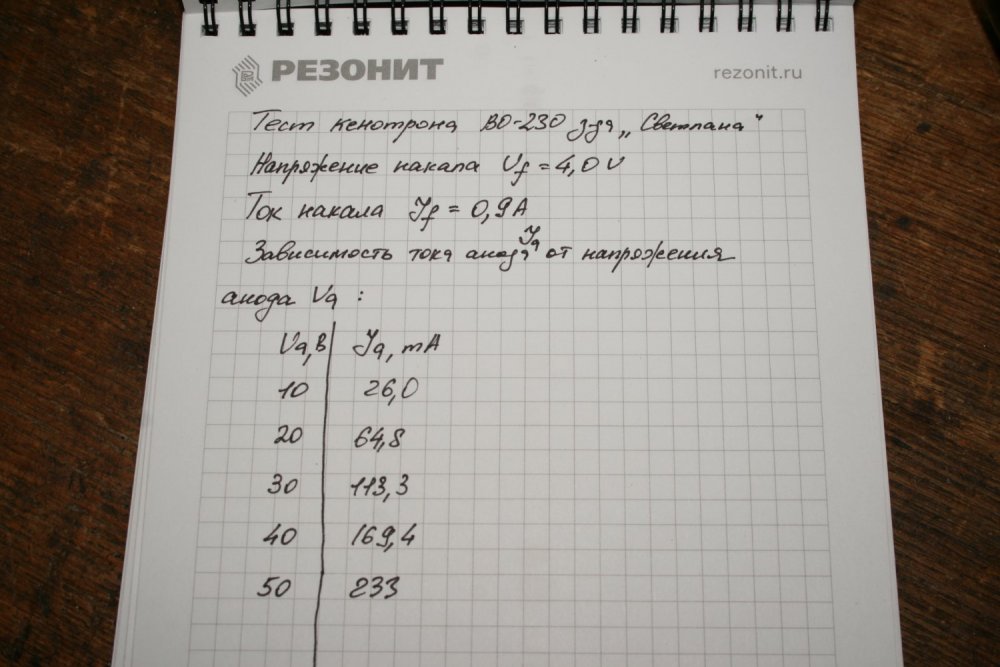 РЕЗОНИТ
rezonit.ru
Тест кенотрона ВО-230 з-да „Светлана"
Напряжение накала Uf = 4,0 V
Ток накала Jf = 0,9 А
Зависимость тока анода Ja от напряжения
анода Ua :
Ua, В Ja, mA
10 26,0
20 64,8
30 113,3
40 169,4
50 233